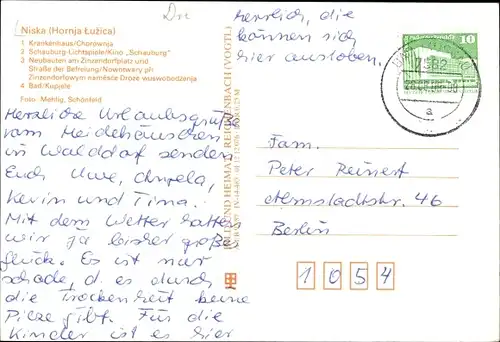 Dre
Niska (Hornja Łužica)
1 Krankenhaus/Chorownja
2 Schauburg-Lichtspiele/Kino „Schauburg“
3 Neubauten am Zinzendorfplatz und
Straße der Befreiung/Nowotwary při
Zinzendorfowym naměsće Dróze wuswobodźenja
4 Bad/Kupjele
Foto: Mehlig, Schönfeld
Herzliche Urlaubsgrüße
vom Heidehäuschen
in Walddorf senden
Euch Uwe, Angela,
Kevin und Tina.
Mit dem Wetter hatten
wir ja bisher großes
Glück. Es ist nur
schade, d. es durch
die Trockenheit keine
Pilze gibt. Für die
Kinder ist es hier
herrlich, die
können sich
hier austoben.
BILD UND HEIMAT REICHENBACH (VOGTL)
10
7562
a
Fam.
Peter Reinert
Almstadtstr. 46
Berlin
1054